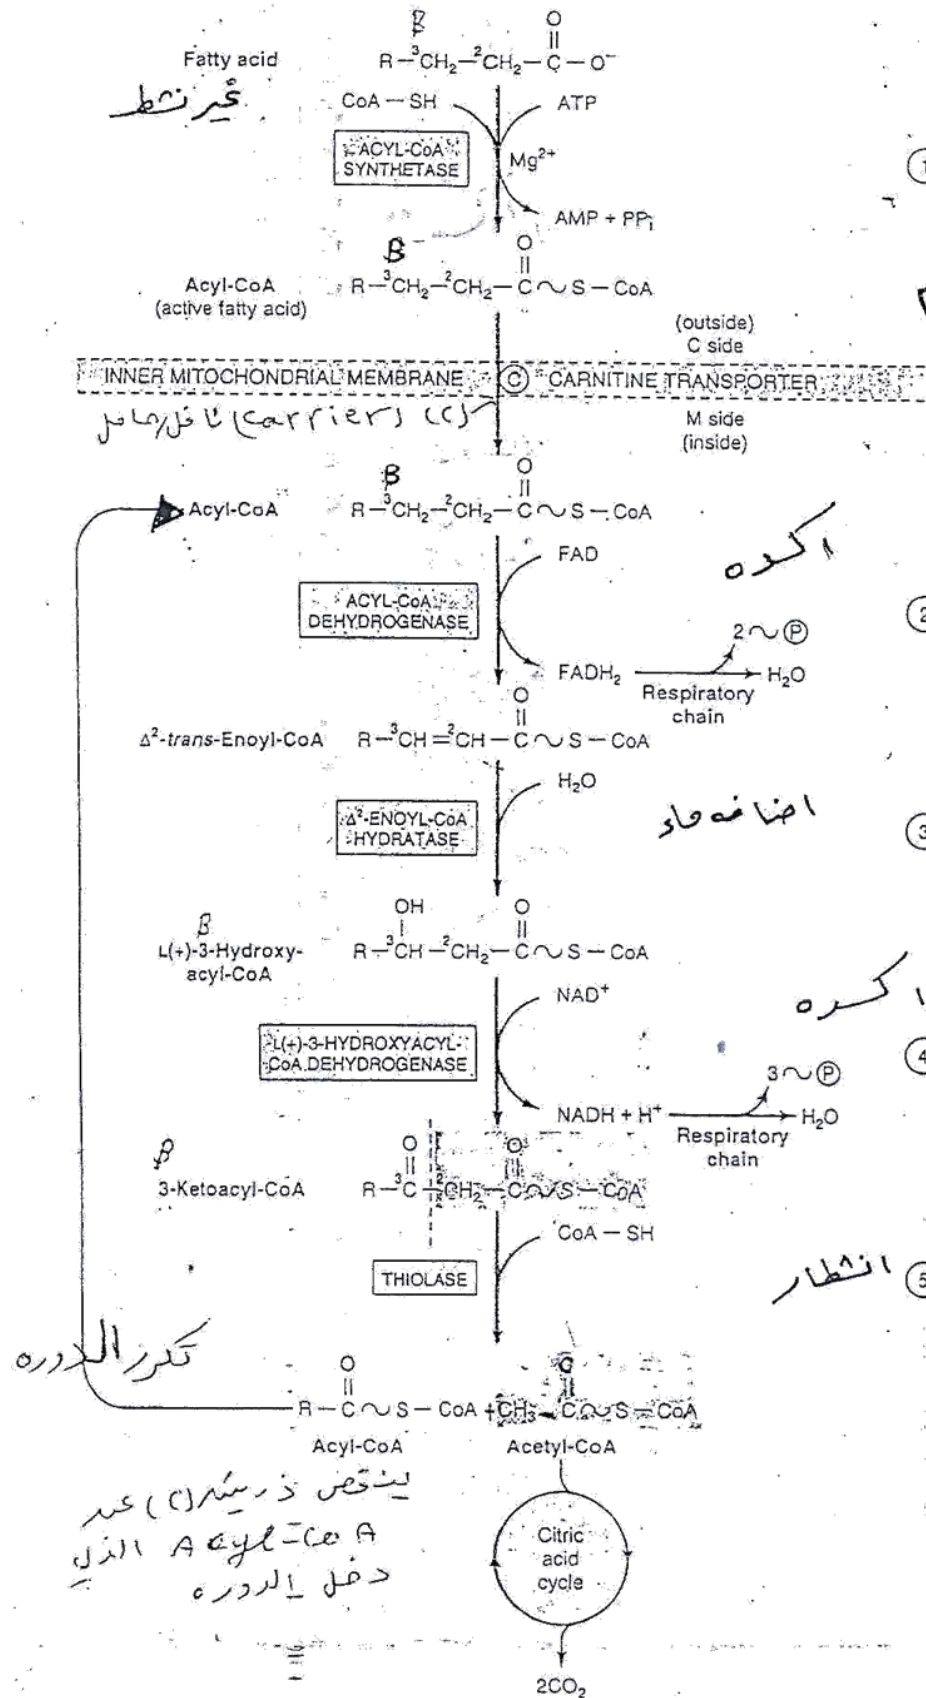 β
O
Fatty acid R—³CH₂—²CH₂—C—O⁻
غير نشط
CoA—SH ATP
ACYL-CoA
SYNTHETASE
Mg²⁺
①
AMP + PPᵢ
β
O
Acyl-CoA
(active fatty acid)
R—³CH₂—²CH₂—C~S—CoA
(outside)
C side
INNER MITOCHONDRIAL MEMBRANE Ⓒ CARNITINE TRANSPORTER
ناقل/حامل (carrier) (c)
M side
(inside)
β
O
Acyl-CoA R—³CH₂—²CH₂—C~S—CoA
FAD
اكسده
ACYL-CoA
DEHYDROGENASE
②
2~Ⓟ
FADH₂ H₂O
Respiratory
chain
O
Δ²-trans-Enoyl-CoA R—³CH=²CH—C~S—CoA
H₂O
Δ²-ENOYL-CoA
HYDRATASE
اضافه ماء
③
OH O
β
L(+)-3-Hydroxy-
acyl-CoA
R—³CH—²CH₂—C~S—CoA
NAD⁺
اكسده
L(+)-3-HYDROXYACYL-
CoA DEHYDROGENASE
④
3~Ⓟ
NADH + H⁺ H₂O
Respiratory
chain
β
O O
3-Ketoacyl-CoA R—³C—²CH₂—C~S—CoA
CoA—SH
THIOLASE
انشطار
⑤
تكرر الدوره
O O
R—C~S—CoA + CH₃—C~S—CoA
Acyl-CoA Acetyl-CoA
ينقص ذرتين (C) عن
Acyl-CoA الذي
دخل الدوره
Citric
acid
cycle
2CO₂